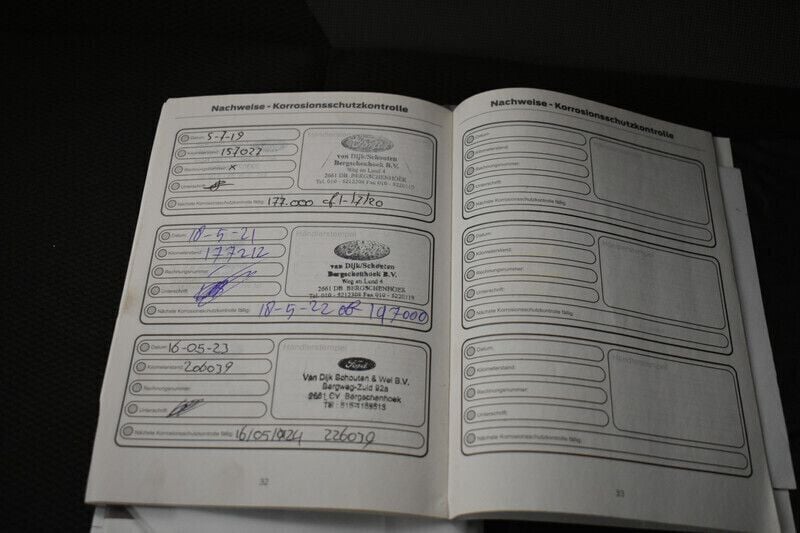 Nachweise - Korrosionsschutzkontrolle
Datum: 5-7-19
Kilometerstand: 157022
Rechnungsnummer: x
Unterschrift:
Nächste Korrosionsschutzkontrolle fällig: 177.000 of 1-12/20
Händlerstempel
Ford
van Dijk/Schouten
Bergschenhoek B.V.
Weg en Land 4
2661 DB BERGSCHENHOEK
Tel. 010 - 5212308 Fax 010 - 5220115
Datum: 18-5-21
Kilometerstand: 177212
Rechnungsnummer:
Unterschrift:
Nächste Korrosionsschutzkontrolle fällig: 18-5-22 of 197000
Händlerstempel
van Dijk/Schouten
Bergschenhoek B.V.
Weg en Land 4
2661 DB BERGSCHENHOEK
Tel. 010 - 5212308 Fax 010 - 5220115
Datum: 16-05-23
Kilometerstand: 206039
Rechnungsnummer:
Unterschrift:
Nächste Korrosionsschutzkontrolle fällig: 16/05/2024 226039
Händlerstempel
Ford
Van Dijk Schouten & Wel B.V.
Bergweg-Zuid 92a
2661 CV Bergschenhoek
32
Nachweise - Korrosionsschutzkontrolle
Datum:
Kilometerstand:
Rechnungsnummer:
Unterschrift:
Nächste Korrosionsschutzkontrolle fällig:
Händlerstempel
Datum:
Kilometerstand:
Rechnungsnummer:
Unterschrift:
Nächste Korrosionsschutzkontrolle fällig:
Händlerstempel
Datum:
Kilometerstand:
Rechnungsnummer:
Unterschrift:
Nächste Korrosionsschutzkontrolle fällig:
Händlerstempel
33